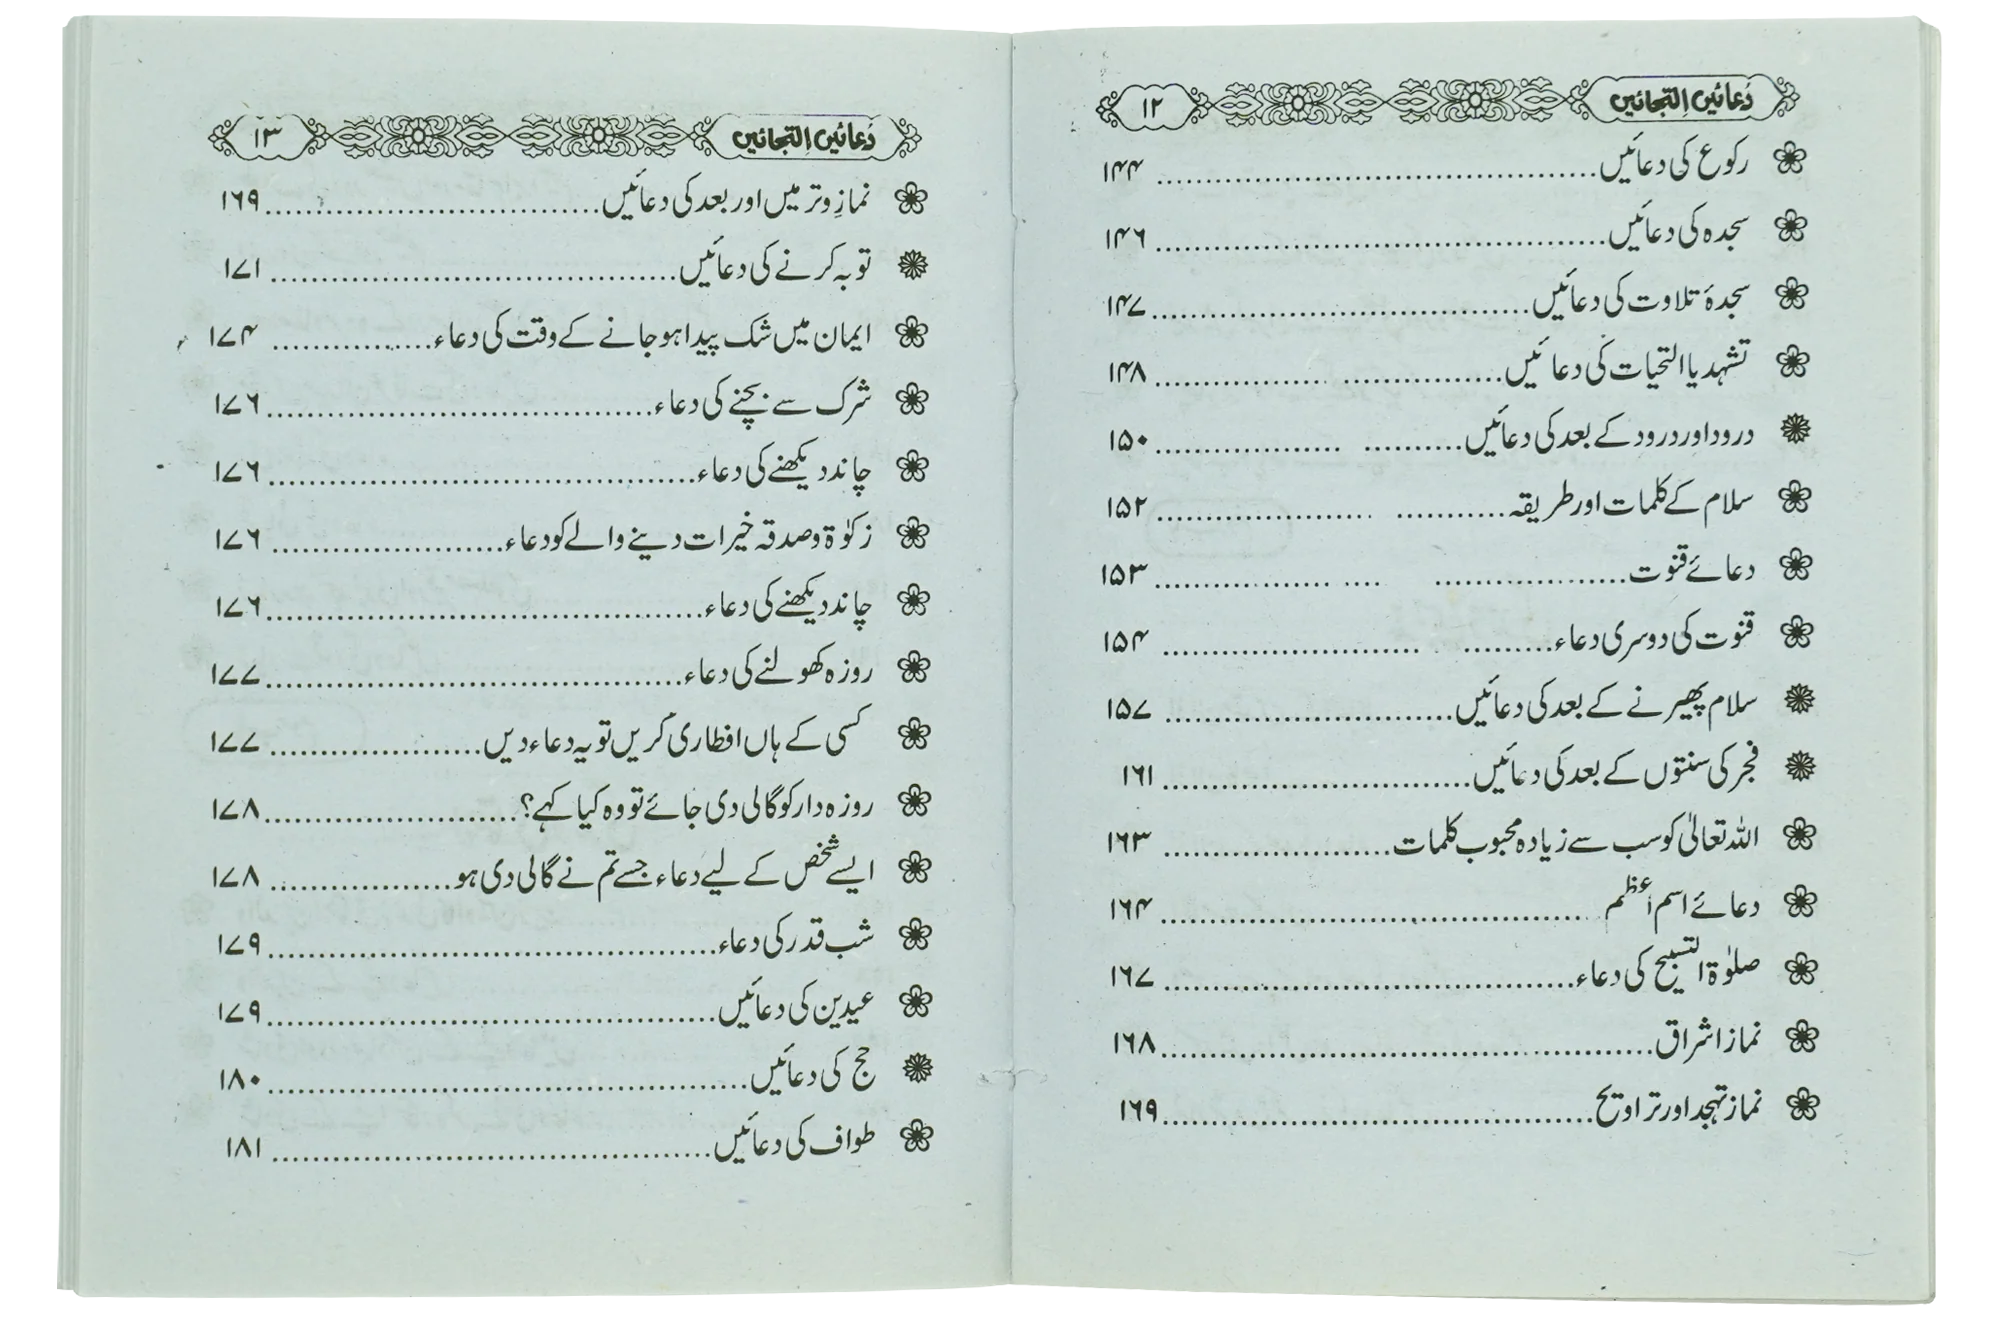 دعائیں التجائیں ۱۲
رکوع کی دعائیں ........ ۱۴۴
سجدہ کی دعائیں ........ ۱۴۶
سجدۂ تلاوت کی دعائیں ........ ۱۴۷
تشہد یا التحیات کی دعائیں ........ ۱۴۸
درود اور درود کے بعد کی دعائیں ........ ۱۵۰
سلام کے کلمات اور طریقہ ........ ۱۵۲
دعائے قنوت ........ ۱۵۳
قنوت کی دوسری دعاء ........ ۱۵۴
سلام پھیرنے کے بعد کی دعائیں ........ ۱۵۷
فجر کی سنتوں کے بعد کی دعائیں ........ ۱۶۱
اللہ تعالیٰ کو سب سے زیادہ محبوب کلمات ........ ۱۶۳
دعائے اسم اعظم ........ ۱۶۴
صلوٰۃ التسبیح کی دعاء ........ ۱۶۷
نماز اشراق ........ ۱۶۸
نماز تہجد اور تراویح ........ ۱۶۹
دعائیں التجائیں ۱۳
نمازِ وتر میں اور بعد کی دعائیں ........ ۱۶۹
توبہ کرنے کی دعائیں ........ ۱۷۱
ایمان میں شک پیدا ہو جانے کے وقت کی دعاء ........ ۱۷۴
شرک سے بچنے کی دعاء ........ ۱۷۶
چاند دیکھنے کی دعاء ........ ۱۷۶
زکوٰۃ و صدقہ خیرات دینے والے کو دعاء ........ ۱۷۶
چاند دیکھنے کی دعاء ........ ۱۷۶
روزہ کھولنے کی دعاء ........ ۱۷۷
کسی کے ہاں افطاری کریں تو یہ دعاء دیں ........ ۱۷۷
روزہ دار کو گالی دی جائے تو وہ کیا کہے؟ ........ ۱۷۸
ایسے شخص کے لیے دعاء جسے تم نے گالی دی ہو ........ ۱۷۸
شب قدر کی دعاء ........ ۱۷۹
عیدین کی دعائیں ........ ۱۷۹
حج کی دعائیں ........ ۱۸۰
طواف کی دعائیں ........ ۱۸۱